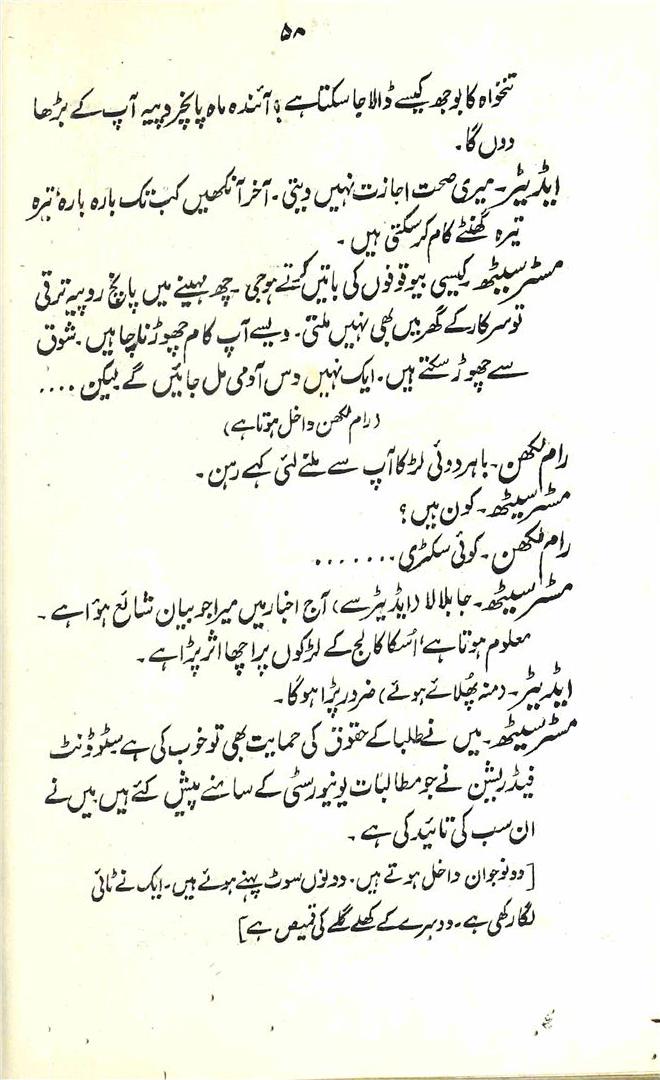 ۵۸
تنخواہ کا بوجھ کیسے ڈالا جا سکتا ہے؟ آئندہ ماہ پانچروپیہ آپ کے بڑھا
دوں گا۔
ایڈیٹر۔ میری صحت اجازت نہیں دیتی۔ آخر آنکھیں کب تک بارہ بارہ، تیرہ
تیرہ گھنٹے کام کر سکتی ہیں۔
مسٹر سیٹھ۔ کیسی بیوقوفوں کی باتیں کرتے ہو جی۔ چھ مہینے میں پانچ روپیہ ترقی
تو سرکار کے گھر میں بھی نہیں ملتی۔ ویسے آپ کام چھوڑنا چاہیں۔ شوق
سے چھوڑ سکتے ہیں۔ ایک نہیں دس آدمی مل جائیں گے لیکن ....
(رام لکھن داخل ہوتا ہے)
رام لکھن۔ باہر دوئی لڑکا آپ سے ملنے لئی کہے رہن۔
مسٹر سیٹھ۔ کون ہیں؟
رام لکھن۔ کوئی سکٹری.......
مسٹر سیٹھ۔ جا بلا لا (ایڈیٹر سے) آج اخبار میں میرا جو بیان شائع ہؤا ہے۔
معلوم ہوتا ہے، اُسکا کالج کے لڑکوں پر اچھا اثر پڑا ہے۔
ایڈیٹر۔ (منہ پھُلائے ہوئے) ضرور پڑا ہوگا۔
مسٹر سیٹھ۔ میں نے طلبا کے حقوق کی حمایت بھی تو خوب کی ہے سٹوڈنٹ
فیڈریشن نے جو مطالبات یونیورسٹی کے سامنے پیش کئے ہیں میں نے
ان سب کی تائید کی ہے۔
[دو نوجوان داخل ہوتے ہیں۔ دونوں سوٹ پہنے ہوئے ہیں۔ ایک نے ٹائی
لگا رکھی ہے۔ دوسرے کے کھلے گلے کی قمیص ہے]